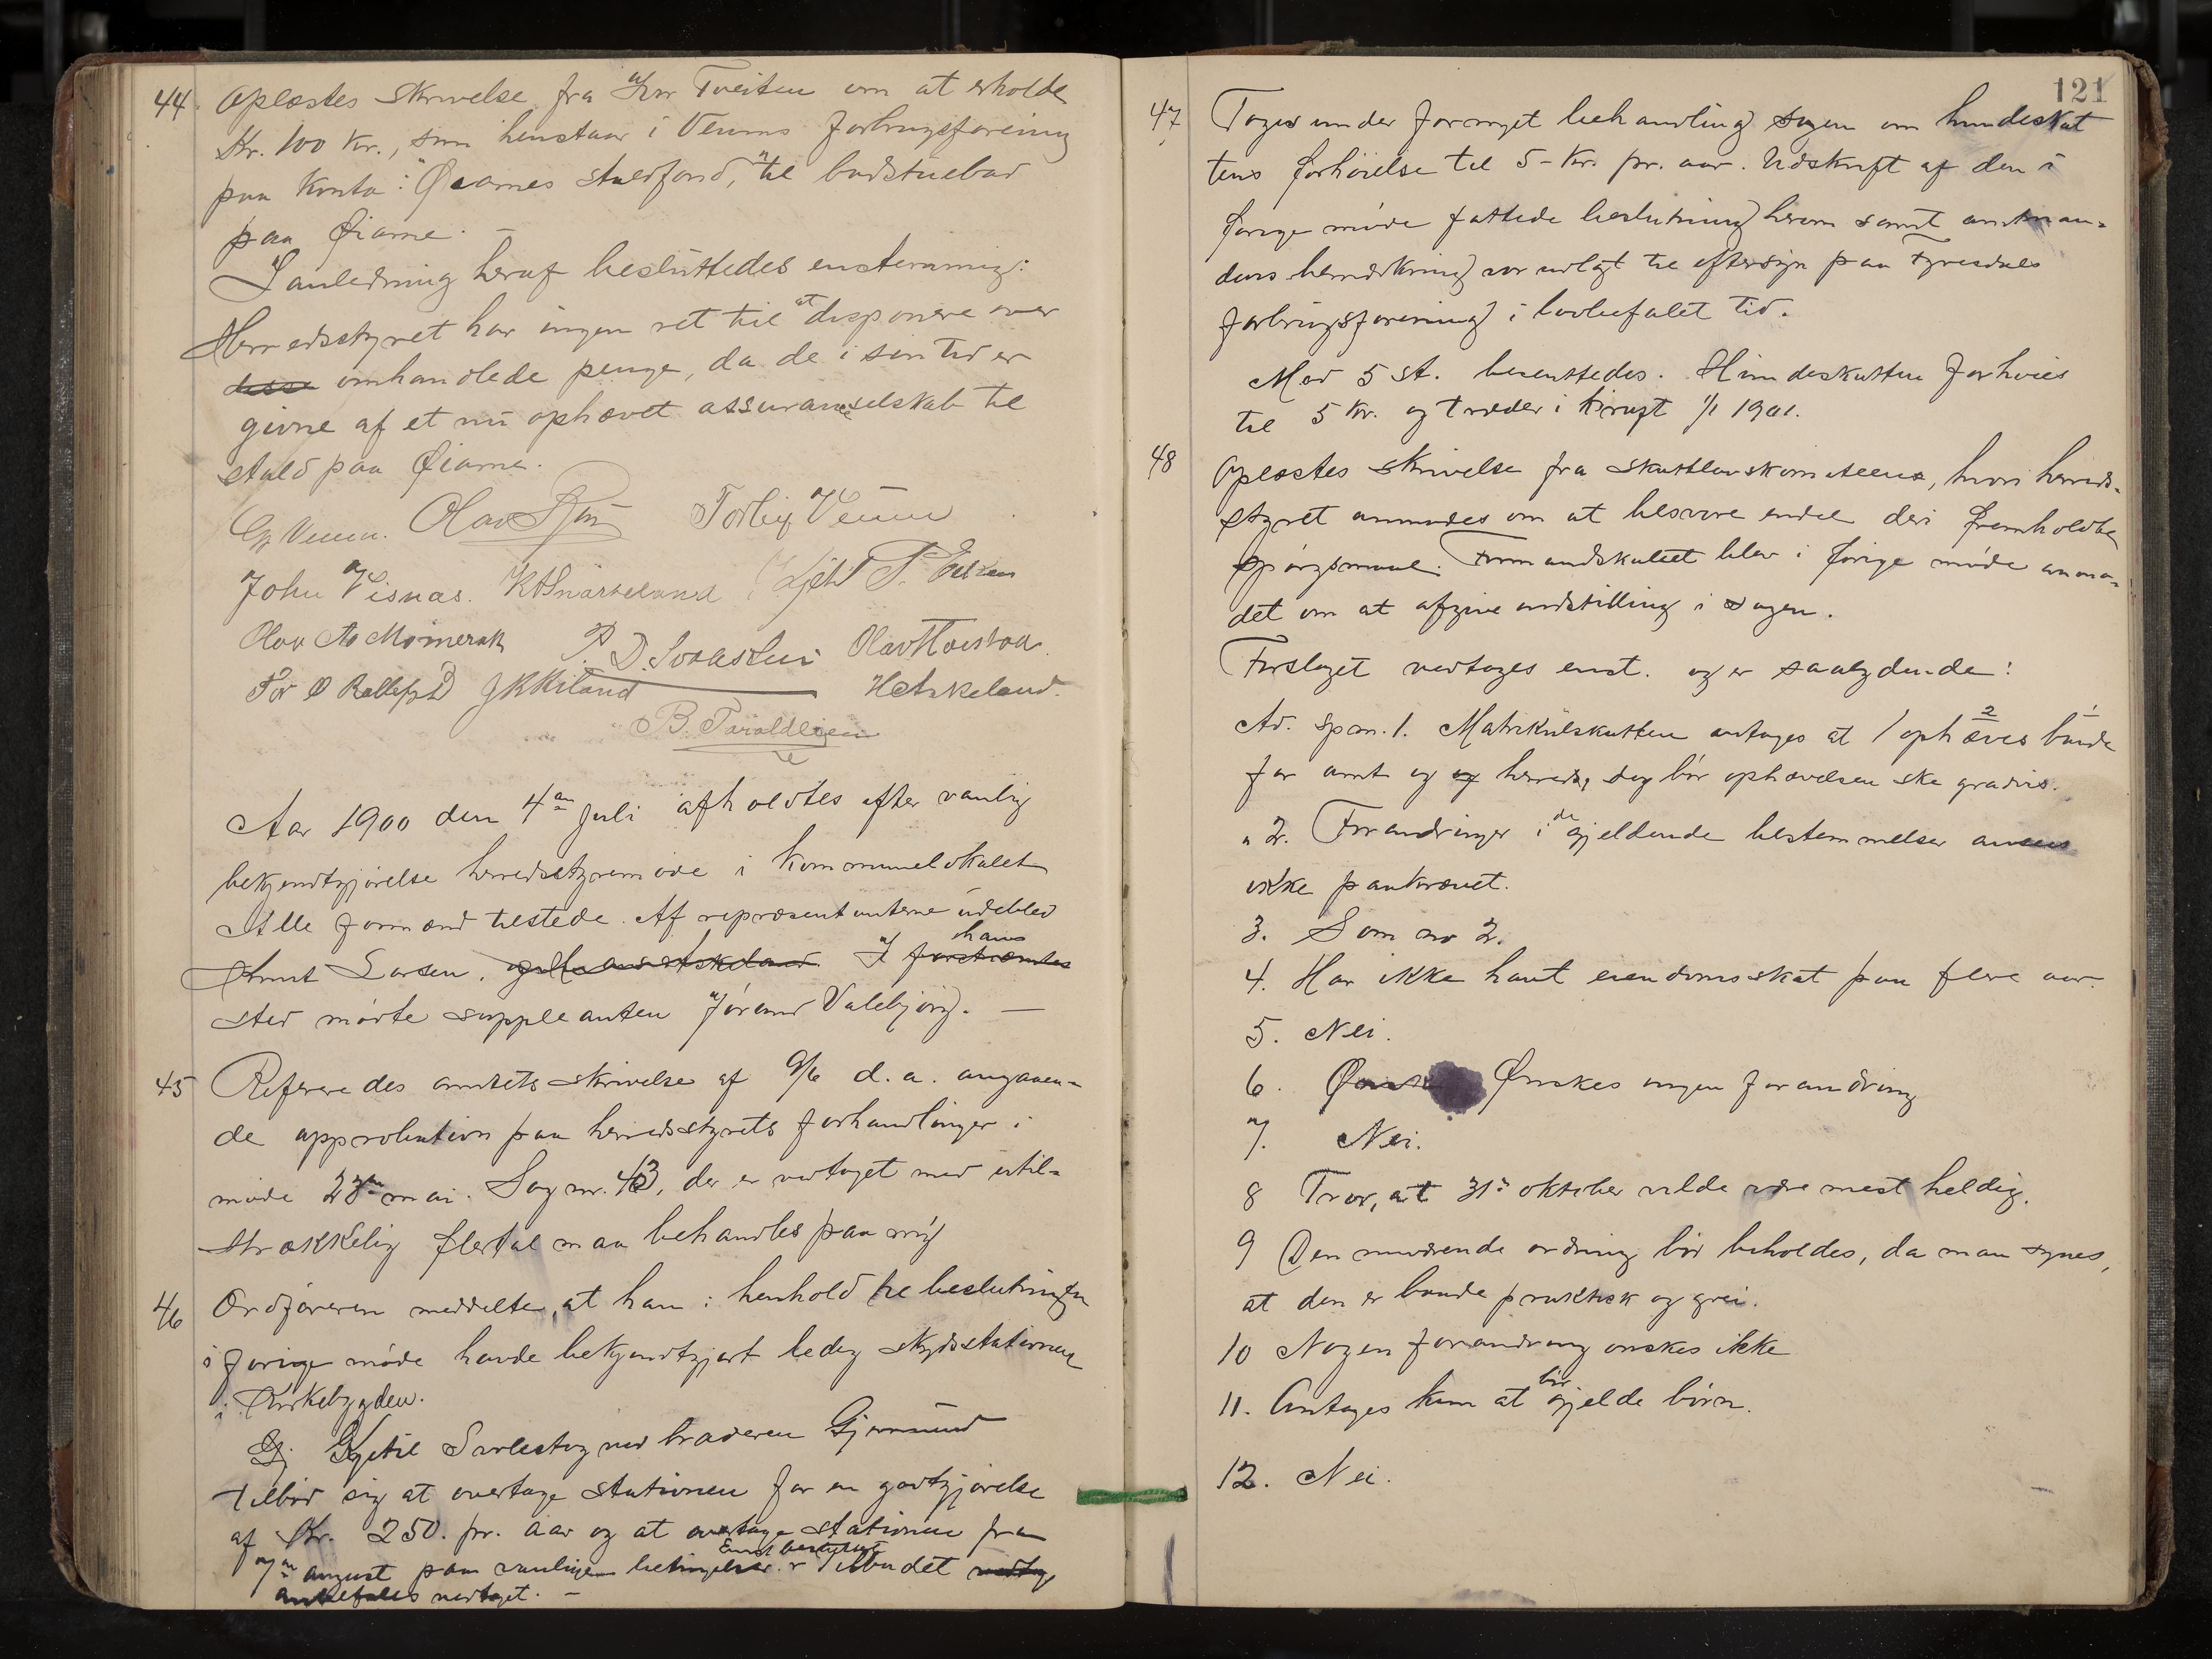 44. Oplæstes skrivelse fra Hr Tveiten om at erholde
Kr. 100 kr., som henstaar i Veums forbrugsforening
paa konto: "Øiarnes staldfond," til badstuebad
paa Øiarne. —
I anledning heraf besluttedes enstemmig:
Herredsstyret har ingen ret til at disponere over
disse omhandlede penge, da de i sin tid er
givne af et nu ophævet assuranceselskab til
stald paa Øiarne.
G Veum. Olav Torleif Veum
John Visnæs.
Olav
Aar 1900 den 4de Juli afholdtes efter vanlig
bekjendtgjørelse herredsstyremøde i kommunelokalet
Alle formænd tilstede. Af repræsentanterne udeblev
Knut Larsen. I hans
sted mødte suppleanten Jørand Valebjørg. —
45 Refereredes amtets skrivelse af 9/6 d. a. angaaen-
de approbation paa herredsstyrets forhandlinger i
møde mai. Sag nr. 43, der er vedtaget med util-
strækkelig flertal maa behandles paa ny
46 Ordføreren meddelte, at han i henhold til beslutningen
i forrige møde havde bekjendtgjort ledig skydsstationen
i Kirkebygden.
Kjetil ved broderen Gjermund
tilbød sig at overtage stationen for en godtgjørelse
af Kr. 250. pr. aar og at overtage stationen fra
august paa vanlige betingelser. Enst besluttet Tilbudet
anbefales vedtaget. —
121
47. Toges under fornyet behandling sagen om hundeskat
tens forhøielse til 5 kr. pr. aar. Udskrift af den i
forrige møde fattede beslutning herom samt amtman-
dens bemærkning var udlagt til eftersyn paa Tyrisdals
forbrugsforening i lovbefalet tid.
Med 5 st. besluttedes. Hundeskatten forhøies
til 5 kr. og træder i kraft 1/1 1901.
48 Oplæstes skrivelse fra skattelovskomiteen, hvori herreds-
styret anmodes om at besvare endel deri fremholdte
spørgsmaal. Formandskabet blev i forrige møde anmo-
det om at afgive indstilling i sagen.
Forslaget vedtoges enst. og er saalydende:
Ad. spm. 1. Matrikulskatten antages at ophæves baade
for amt og og herred, dog bør ophævelsen ske gradvis.
" 2. Forandringer i de gjeldende bestemmelser ansees
ikke paakrævet.
3. Som no 2.
4. Har ikke havt eiendomsskat paa flere aar.
5. Nei.
6. Ønskes ingen forandring
7. Nei.
8 Tror, at 31te oktober vilde være mest heldig.
9 Den nuværende ordning bør beholdes, da man synes,
at den er baade praktisk og grei.
10 Nogen forandring ønskes ikke
11. Antages kun at bør gjelde børn.
12. Nei.